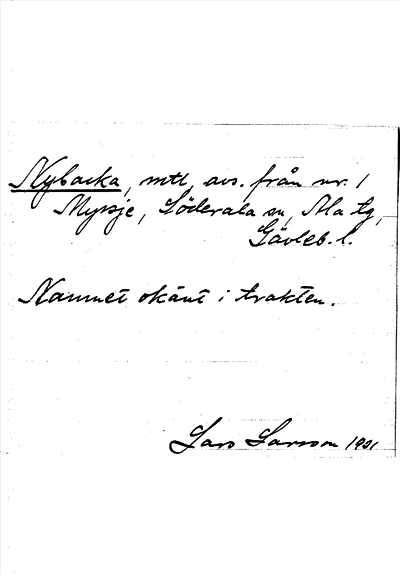 Nybacka, mtl, avs. från nr. 1
Myrsje, Söderala sn, Ala tg,
Gävleb. l.
Namnet okänt i trakten.
Lars Larsson 1901